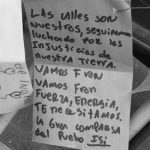 LAS calles son
nuestras, seguiremos
luchando por las
Injusticias de
nuestra Tierra.
VAMOS Fran
VAMOS Fran
FUERZA, ENERGÍA,
TE necesitamos.
LA Gran comparsa
del Pueblo Isi